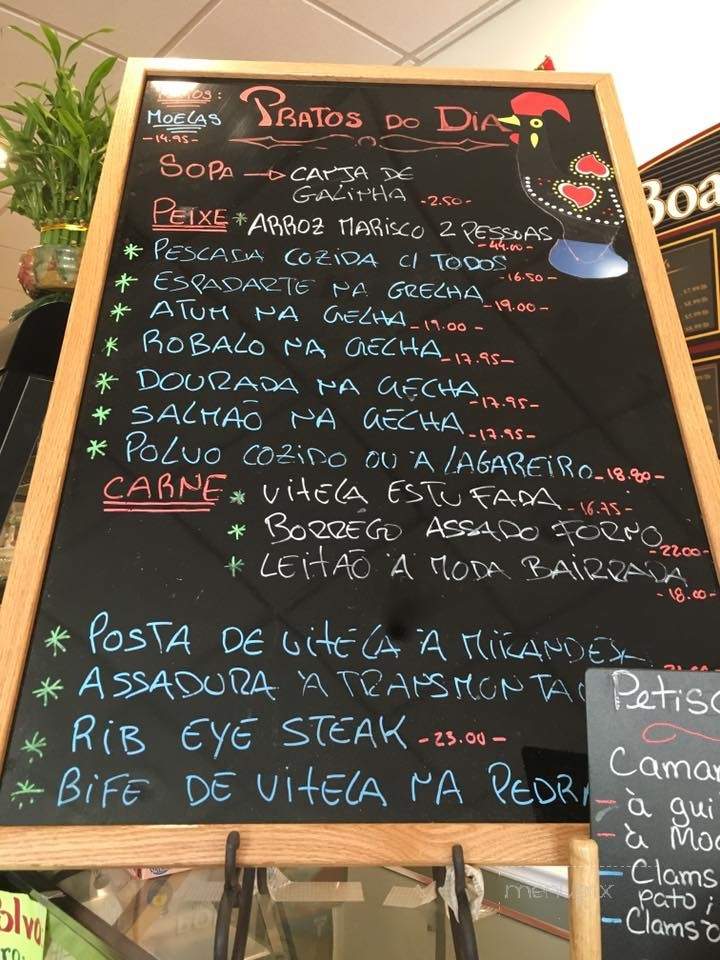 MOELAS
-14.95-
PRATOS DO DIA
SOPA → CANJA DE
GALINHA -2.50-
PEIXE * ARROZ MARISCO 2 PESSOAS
-44.00-
* PESCADA COZIDA C/ TODOS
-16.50-
* ESPADARTE NA GRELHA
-19.00-
* ATUM NA GELHA -19.00-
* ROBALO NA GECHA -17.95-
* DOURADA NA GECHA
-17.95-
* SALMAÕ NA GECHA -17.95-
* POLVO COZIDO OU À LAGAREIRO -18.90-
CARNE * VITELA ESTUFADA -16.75-
* BORREGO ASSADO FORNO
-22.00-
* LEITAÕ À MODA BAIRRADA
-18.00-
* POSTA DE VITELA À MIRANDESA
* ASSADURA À TRANSMONTA
* RIB EYE STEAK -23.00-
* BIFE DE VITELA NA PEDR
Boa
Petisc
Camar
- à gui
- à Mo
- Clams
pato;
- Clams
olvo